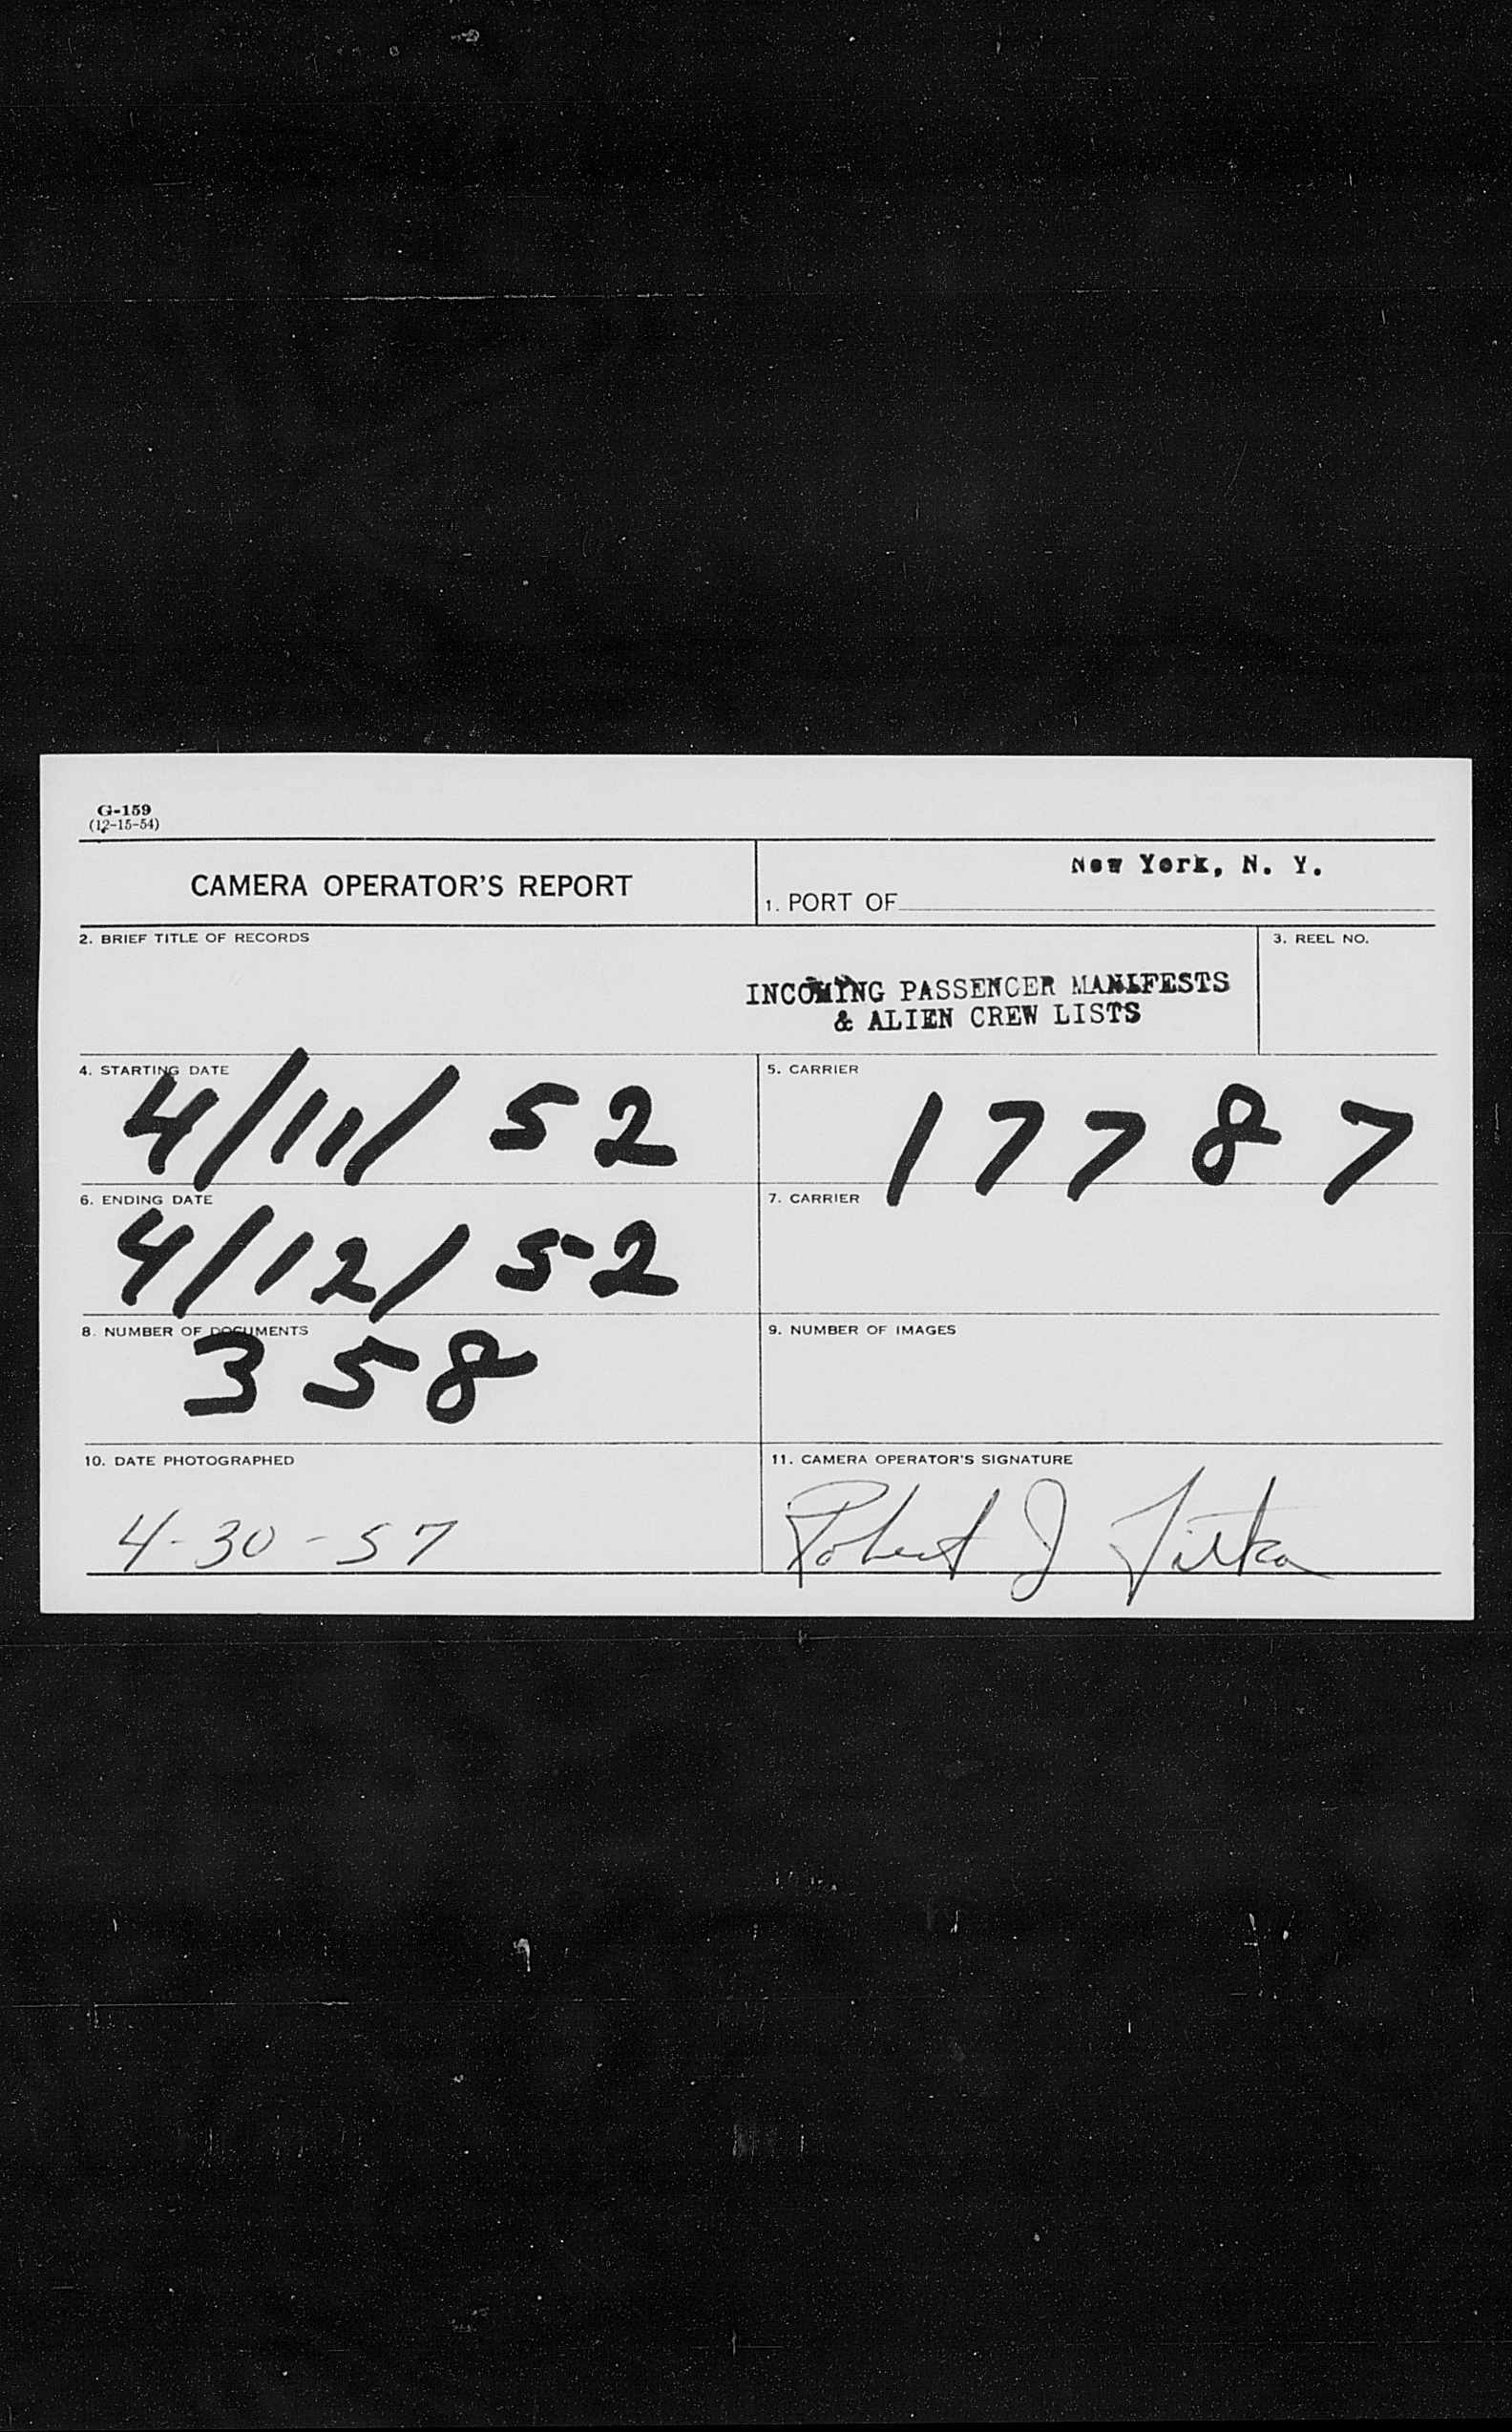 G-159
(12-15-54)
CAMERA OPERATOR'S REPORT
New York, N. Y.
1. PORT OF
2. BRIEF TITLE OF RECORDS
3. REEL NO.
INCOMING PASSENGER MANIFESTS
& ALIEN CREW LISTS
4. STARTING DATE
4/11/52
5. CARRIER
17787
6. ENDING DATE
4/12/52
7. CARRIER
8. NUMBER OF DOCUMENTS
358
9. NUMBER OF IMAGES
10. DATE PHOTOGRAPHED
4-30-57
11. CAMERA OPERATOR'S SIGNATURE
Robert J